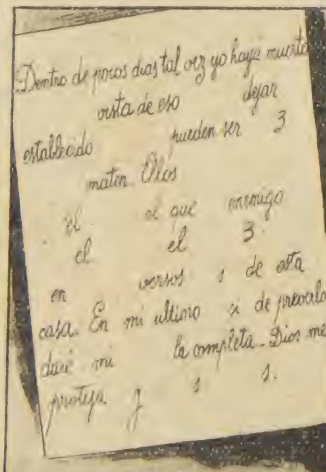 Dentro de pocos dias tal vez yo haya muerto
vista de eso dejar
establecido pueden ser 3
maten. Ellos
el el que enemigo
el el 3.
en versos s de esta
casa. En mi ultimo si de
daré mi la completa. Dios me
proteja y s s.